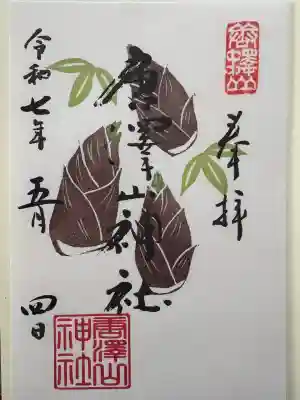 唐澤山
奉拝
唐澤山神社
令和七年 五月 四日
唐澤山
神社